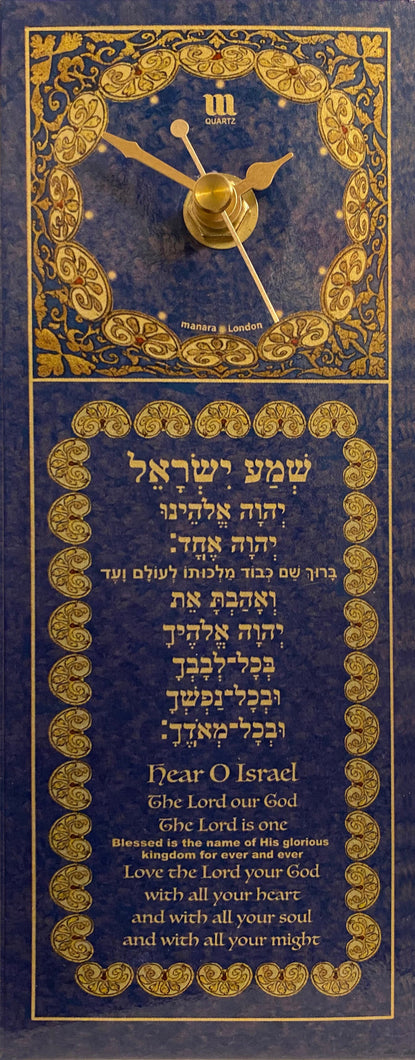 m
QUARTZ
manara London
שְׁמַע יִשְׂרָאֵל
יְהוָה אֱלֹהֵינוּ
יְהוָה אֶחָד׃
בָּרוּךְ שֵׁם כְּבוֹד מַלְכוּתוֹ לְעוֹלָם וָעֶד
וְאָהַבְתָּ אֵת
יְהוָה אֱלֹהֶיךָ
בְּכָל־לְבָבְךָ
וּבְכָל־נַפְשְׁךָ
וּבְכָל־מְאֹדֶךָ׃
Hear O Israel
The Lord our God
The Lord is one
Blessed is the name of His glorious
kingdom for ever and ever
Love the Lord your God
with all your heart
and with all your soul
and with all your might